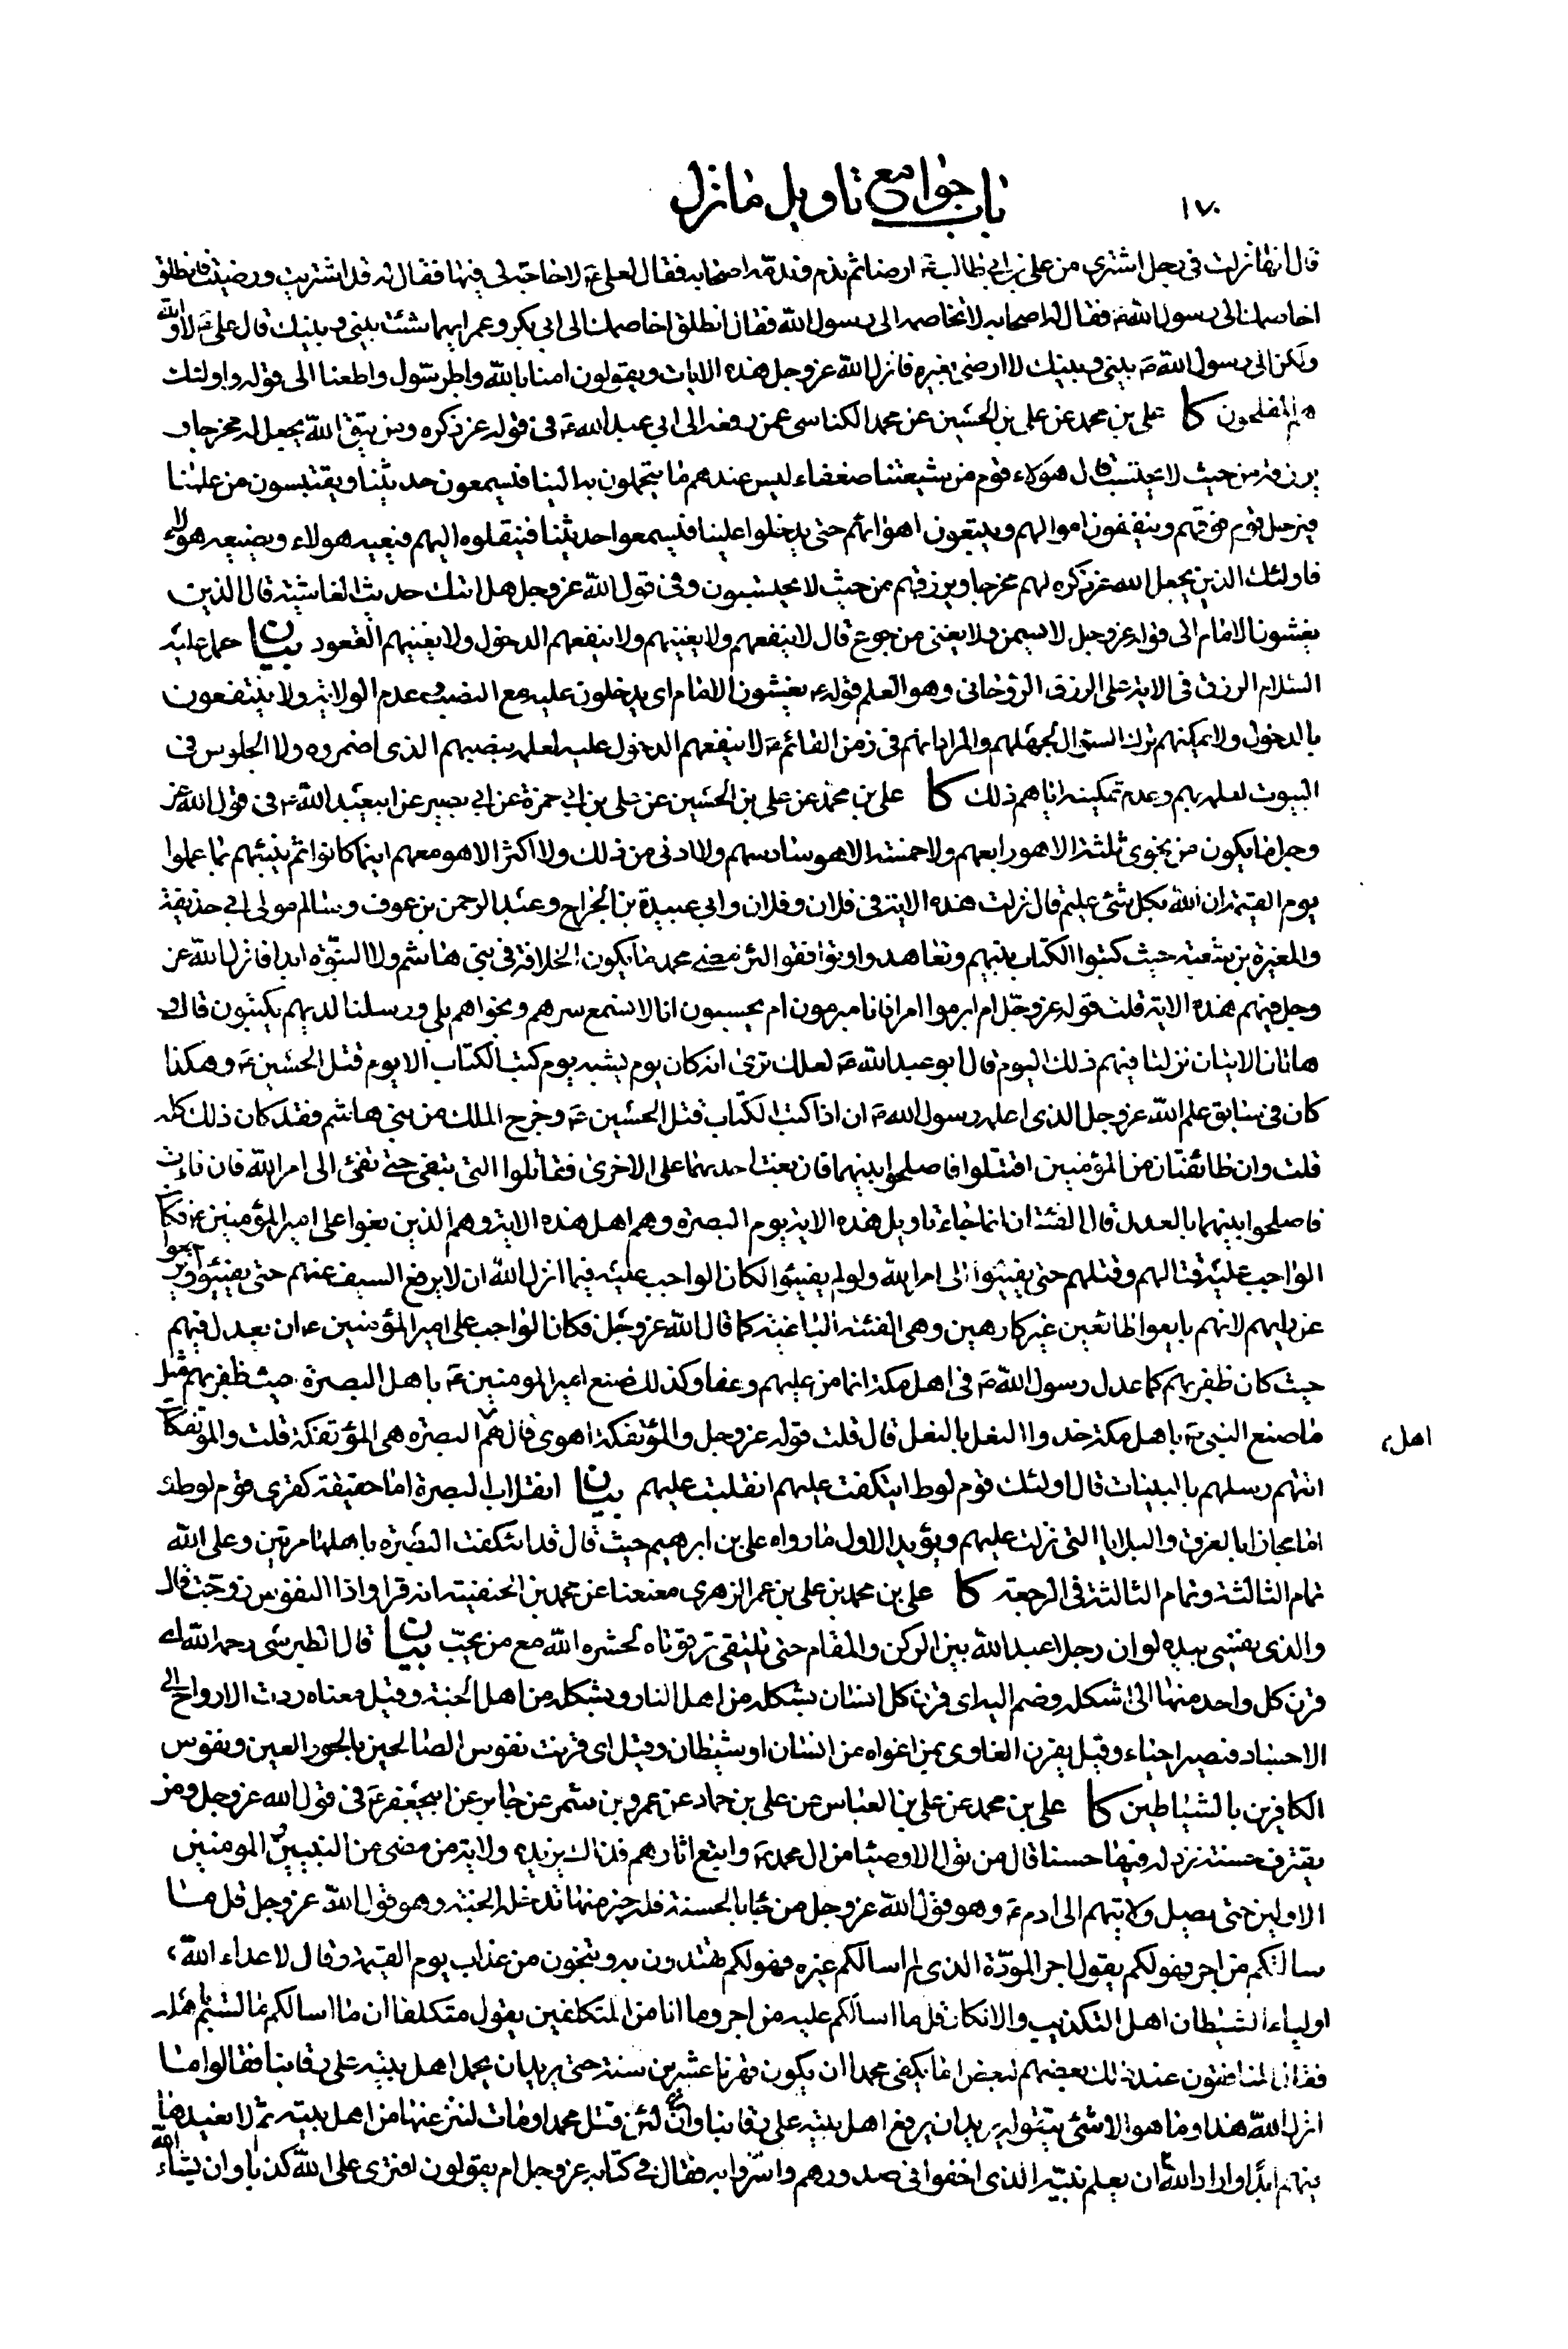 ١٧٠
باب جوامع تاويل ما نزل
قال انها نزلت فى رجل اشترى من على بن ابى طالب ع ارضا ثم ندم وندمه اصحابه فقال لعلى ع لا حاجة لى فيها فقال له قد اشتريت ورضيت فانطلق
اخاصمك الى رسول الله ص فقال له اصحابه لا تخاصمه الى رسول الله فقال انطلق اخاصمك الى ابى بكر وعمر ايهما شئت بينى وبينك قال على ع لا والله
ولكن الى رسول الله ص بينى وبينك لا ارضى بغيره فانزل الله عز وجل هذه الايات ويقولون امنا بالله وبالرسول واطعنا الى قوله واولئك
هم المفلحون كا على بن محمد عن على بن الحسين عن محمد الكناسى عمن رفعه الى ابى عبد الله ع فى قوله عز ذكره ومن يتق الله يجعل له مخرجا و
يرزقه من حيث لا يحتسب قال هؤلاء قوم من شيعتنا ضعفاء ليس عندهم ما يتحملون به الينا فيسمعون حديثنا ويقتبسون من علمنا
فيرحل قوم فوقهم وينفقون اموالهم ويتعبون ابدانهم حتى يدخلوا علينا فيسمعوا حديثنا فينقلوه اليهم فيعيه هولاء ويضيعه هولاء
فاولئك الذين يجعل الله عز ذكره لهم مخرجا ويرزقهم من حيث لا يحتسبون وفى قول الله عز وجل هل اتيك حديث الغاشية قال الذين
يغشون الامام الى قوله عز وجل لا يسمن ولا يغنى من جوع قال لا ينفعهم ولا يغنيهم ولا ينفعهم الدخول ولا يغنيهم القعود بيان حمل عليه
السلام الرزق فى الاية على الرزق الروحانى وهو العلم قوله ع يغشون الامام اى يدخلون عليه مع النصب وعدم الولاية ولا ينتفعون
بالدخول ولا يمكنهم ترك السؤال لجهلهم والمراد انهم فى زمن القائم ع لا ينفعهم الدخول عليه لعلمه بنصبهم الذى اضمروه ولا الجلوس فى
البيوت لعلمه بهم وعدم تمكينه اياهم ذلك كا على بن محمد عن على بن الحسين عن على بن ابى حمزة عن ابى بصير عن ابيعبد الله ع فى قول الله عز
وجل ما يكون من نجوى ثلثة الا هو رابعهم ولا خمسة الا هو سادسهم ولا ادنى من ذلك ولا اكثر الا هو معهم اينما كانوا ثم ينبئهم بما عملوا
يوم القيمة ان الله بكل شئ عليم قال نزلت هذه الاية فى فلان وفلان وابى عبيدة بن الجراح وعبد الرحمن بن عوف وسالم مولى ابى حذيفة
والمغيرة بن شعبة حيث كتبوا الكتاب بينهم وتعاهدوا وتوافقوا لئن مضى محمد ما يكون الخلافة فى بنى هاشم ولا النبوة ابدا فانزل الله عز
وجل فيهم هذه الاية قلت قوله عز وجل ام ابرموا امرا فانا مبرمون ام يحسبون انا لا نسمع سرهم ونجواهم بلى ورسلنا لديهم يكتبون قال و
هاتان الايتان نزلتا فيهم ذلك اليوم قال ابو عبد الله ع لعلك ترى انه كان يوم يشبه يوم كتب الكتاب الا يوم قتل الحسين ع وهكذا
كان فى سابق علم الله عز وجل الذى اعلمه رسول الله ص ان اذا كتب الكتاب قتل الحسين ع وخرج الملك من بنى هاشم فقد كان ذلك كله
قلت وان طائفتان من المؤمنين اقتتلوا فاصلحوا بينهما فان بغت احديهما على الاخرى فقاتلوا التى تبغى حتى تفئ الى امر الله فان فاءت
فاصلحوا بينهما بالعدل قال الفئتان انما جاء تاويل هذه الاية يوم البصرة وهم اهل هذه الاية وهم الذين بغوا على امير المؤمنين ع فكان
الواجب عليه قتالهم وقتلهم حتى يفيئوا الى امر الله ولو لم يفيئوا لكان الواجب عليه فيما انزل الله ان لا يرفع السيف عنهم حتى يفيئوا ويرجعوا
عن رايهم لانهم بايعوا طائعين غير كارهين وهى الفئة الباغية كما قال الله عز وجل فكان الواجب على امير المؤمنين ع ان يعدل فيهم
حيث كان ظفر بهم كما عدل رسول الله ص فى اهل مكة انما من عليهم وعفا وكذلك صنع امير المومنين ع باهل البصرة حيث ظفر بهم مثل
ما صنع النبى ص باهل مكة حذوا النعل بالنعل قال قلت قوله عز وجل والمؤتفكة اهوى قال هم البصره هى المؤتفكة قلت والمؤتفكات
اهل
اتتهم رسلهم بالبينات قال اولئك قوم لوط ايتكفت عليهم انقلبت عليهم بيان انقلاب البصرة اما حقيقة كقرى قوم لوط و
اما مجازا بالغرق والبلايا التى نزلت عليهم ويؤيد الاول ما رواه على بن ابرهيم حيث قال قد ائتكفت البصره باهلها مرتين وعلى الله
تمام الثالثة وتمام الثالثة فى الرجعة كا على بن محمد بن على بن عمر الزهرى معنعنا عن محمد بن الحنفية انه قرا واذا النفوس زوجت قال
والذى نفسى بيده لو ان رجلا عبد الله بين الركن والمقام حتى تلتقى ترقوتاه لحشره الله مع من يحب بيان قال الطبرسى رحمه الله اى
قرن كل واحد منها الى شكله وضم اليه اى قرن كل انسان بشكله من اهل النار وبشكله من اهل الجنة وقيل معناه ردت الارواح الى
الاجساد فتصير احياء وقيل يقرن الغاوى بمن اغواه من انسان او شيطان وقيل اى قرنت نفوس الصالحين بالحور العين ونفوس
الكافرين بالشياطين كا على بن محمد عن على بن العباس عن على بن حماد عن عمرو بن شمر عن جابر عن ابيجعفر ع فى قول الله عز وجل ومن
يقترف حسنة نزد له فيها حسنا قال من تولى الاوصيا من ال محمد ص واتبع اثارهم فذاك يزيده ولاية من مضى من النبيين والمومنين
الاولين حتى يصل ولايتهم الى ادم ع وهو قول الله عز وجل من جاء بالحسنة فله خير منها تدخله الجنة وهو قول الله عز وجل قل ما
سالتكم من اجر فهو لكم يقول اجر المودة الذى لم اسالكم غيره فهو لكم تهتدون به وتنجون من عذاب يوم القيمة وقال لاعداء الله
اولياء الشيطان اهل التكذيب والانكار قل ما اسالكم عليه من اجر وما انا من المتكلفين يقول متكلفا ان ما اسالكم ما لستم اهله
فقال المنافقون عند ذلك بعضهم لبعض اما يكفى محمدا ان يكون قهرنا عشرين سنة حتى يريد ان يحمل اهل بيته على رقابنا فقالوا ما
انزل الله هذا وما هو الا شئ يتقوله يريد ان يرفع اهل بيته على رقابنا وان لئن قتل محمد او مات لننزعنها من اهل بيته ثم لا نعيدها
فيهم ابدا واراد الله ان يعلم نبيه الذى اخفوا فى صدورهم واسروا به فقال فى كتابه عز وجل ام يقولون افترى على الله كذبا وان يشاء الله